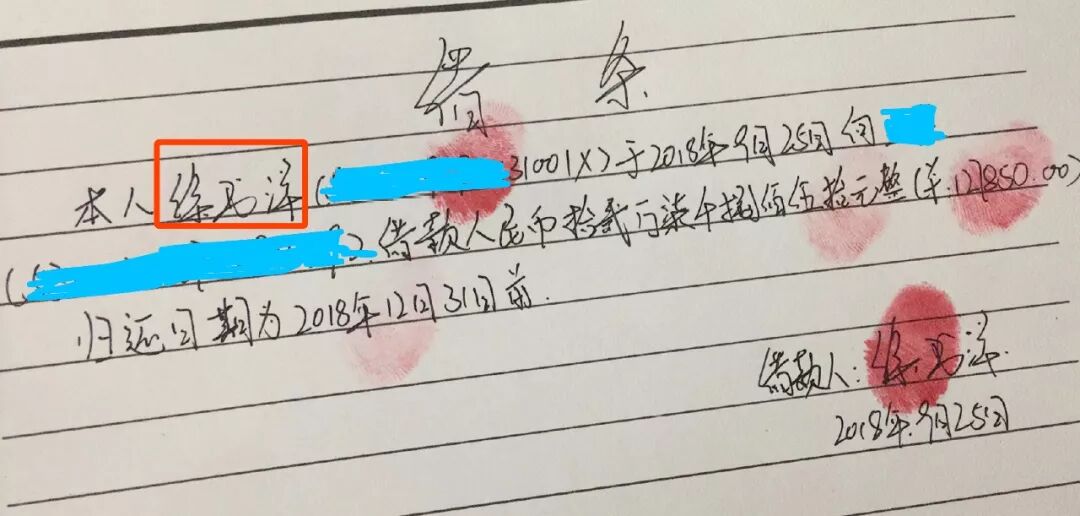 借 条
本人徐马洋(31001X)于2018年9月25日向
()借款人民币拾贰万柒仟捌佰伍拾元整(¥:127850.00)
归还日期为2018年12月31日前.
借款人:徐马洋.
2018年9月25日